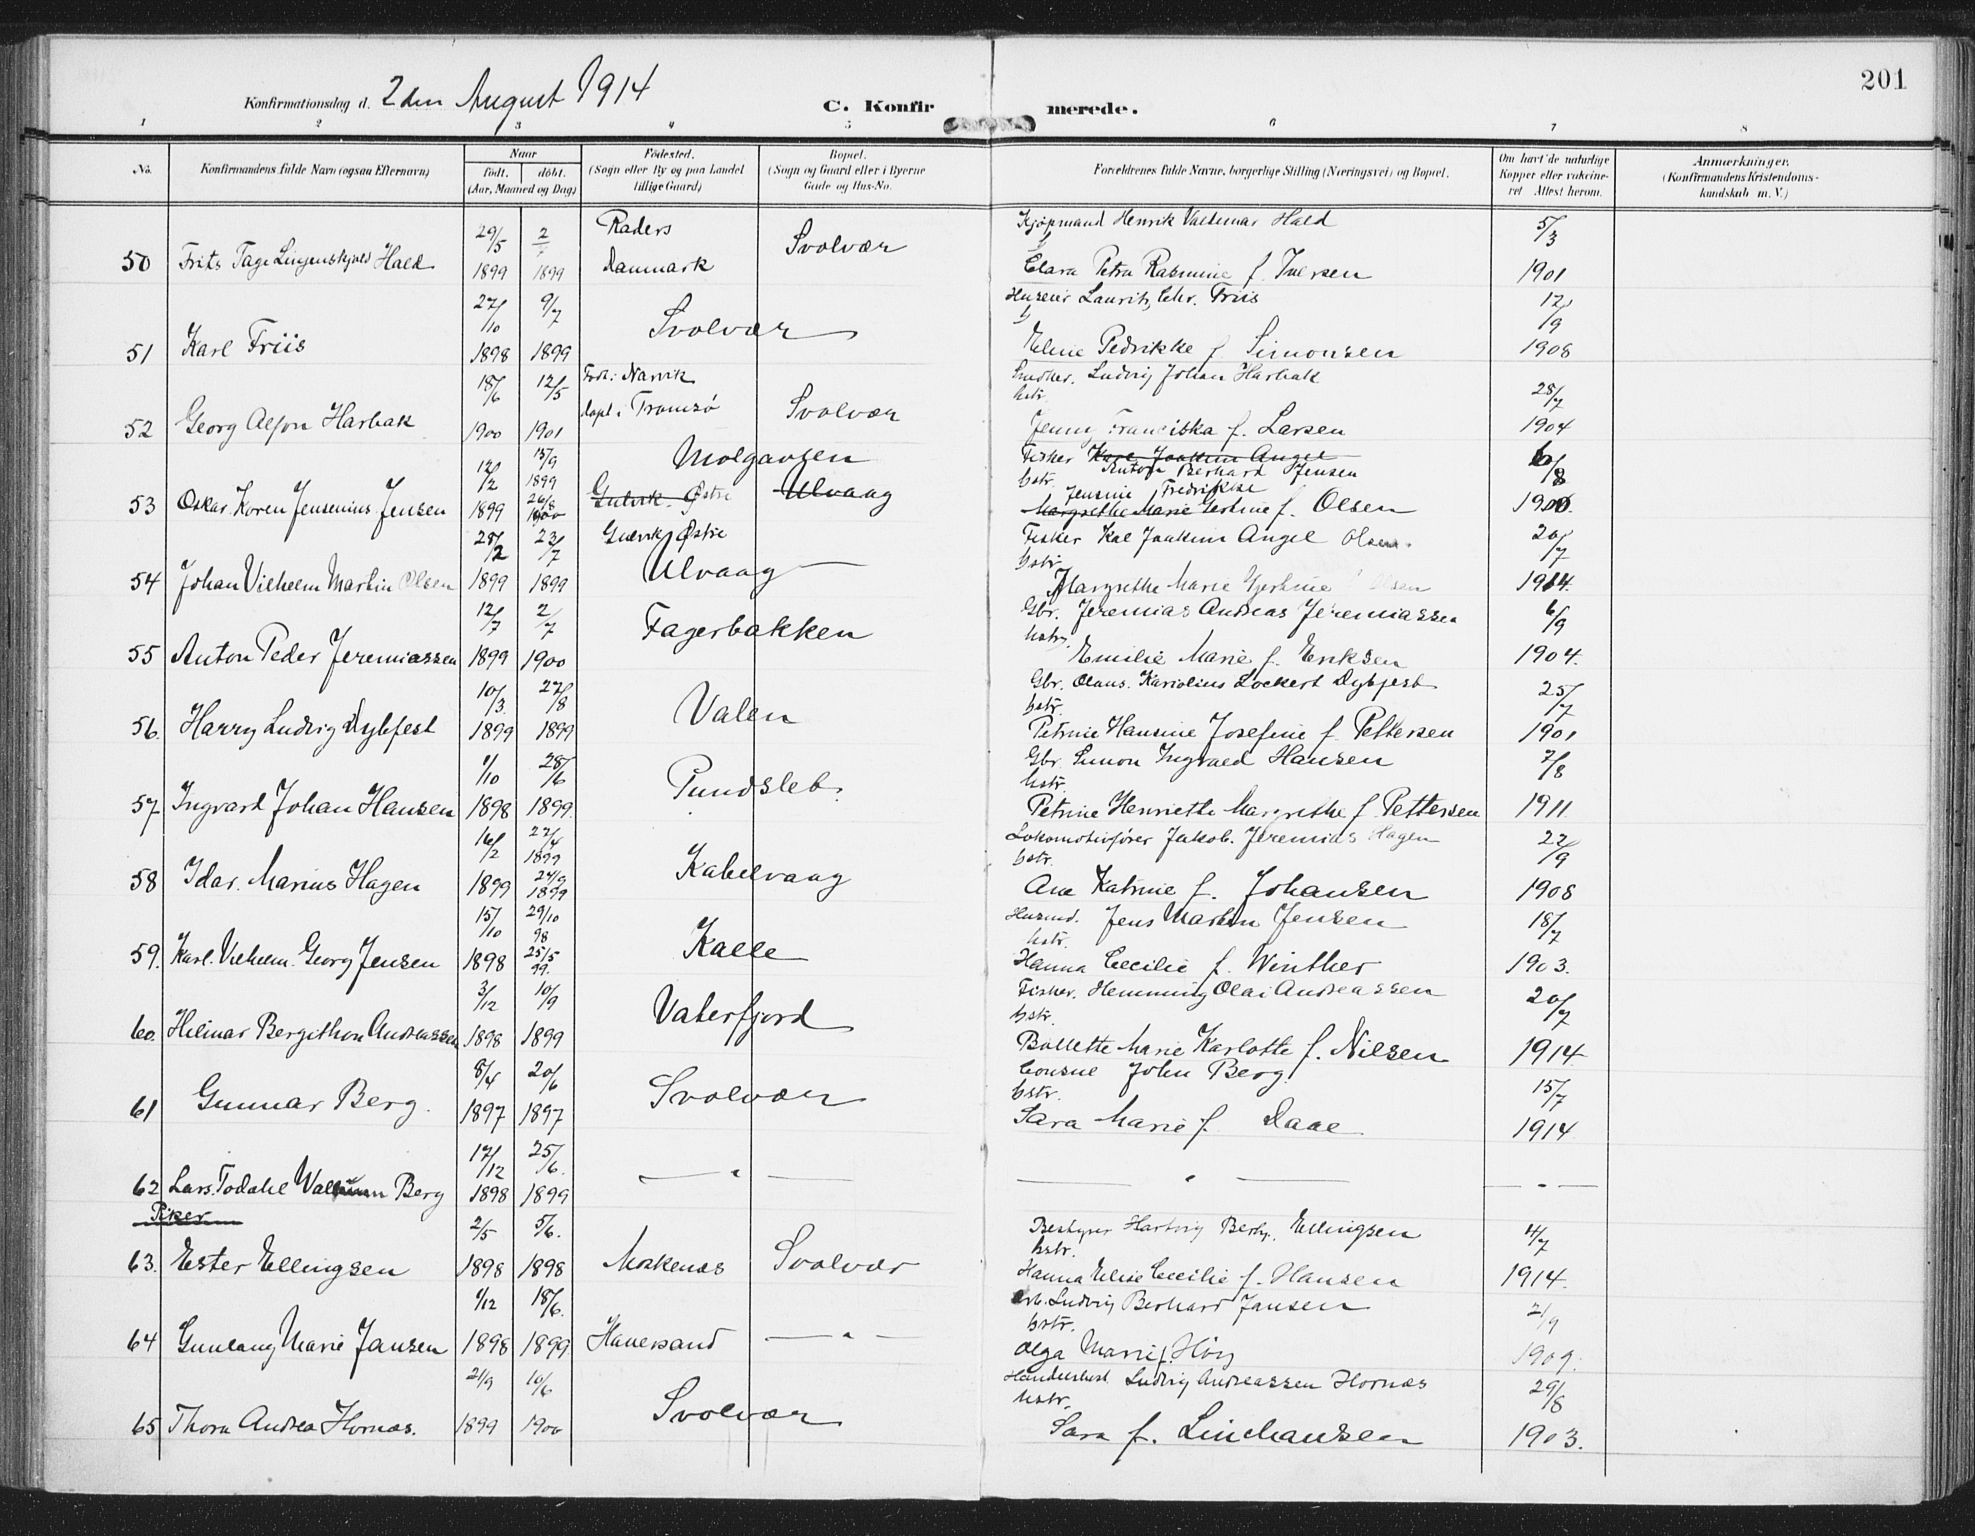 201
Konfirmationsdag d. 2den August 1914
C. Konfirmerede.
1 2 3 4 5 6 7 8
No.
Konfirmandens fulde Navn (ogsaa Efternavn)
Naar
født. døbt.
(Aar, Maaned og Dag)
Fødested.
(Sogn eller By og paa Landet
tillige Gaard)
Bopæl.
(Sogn og Gaard eller i Byerne
Gade og Hus-No.
Forældrenes fulde Navne, borgerlige Stilling (Næringsvei) og Bopæl.
Om havt de naturlige
Kopper eller vakcine-
ret Attest herom.
Anmærkninger.
(Konfirmandens Kristendoms-
kundskab m. V.)
29/5 2 Raders Svolvær Kjøpmand Henrik Valdemar Hald 5/3
50 Frits Tage Hald 1899 1899 Danmark Clara Petra Rasmine f. Iversen 1901
27/10 9/7 Svolvær Laurits Chr. Friis 12/9
51 Karl Friis 1898 1899 Eline Pedrikke f. Simonsen 1908
18/6 12/5 Født: Narvik Svolvær Snedker. Ludvig Johan Harbak 28/7
hstr.
52 Georg Alfon Harbak 1900 1901 døpt i Tromsø Jenny Franciska f. Larsen 1904
12/2 15/9 1899 Molgavsen Fisker Karl Joakim Angel 6/8
Anton Berhard Jensen
hstr. Jensine Fredrikke
53 Oskar Koren Jensenius Jensen 1899 26/8 1900 Gulvik Østre Ulvaag Margrethe Marie Gertine f. Olsen 1900.
28/2 23/7 Gulvik Østre Fisker Kal Joakim Angel Olsen. 20/7
hstr.
54 Johan Vilhelm Martin Olsen 1899 1899 Ulvaag Margrethe Marie Gjertine Olsen 1914.
12/7 2/7 Fagerbakken Gbr. Jeremias Andreas Jeremiassen 6/9
hstr.
55 Anton Peder Jeremiassen 1899 1900 Emilie Marie f. Eriksen 1904.
10/3 27/8 Valen Gbr. Olaus. Kariolius Lockert Dybfest 25/7
hstr.
56. Harry Ludvig Dybfest 1899 1899 Petrine Hansine Josefine f. Pettersen 1901
1/10 28/6 Pundsleb. Gbr. Simon Ingvald Hansen 2/8
hstr.
57 Ingvard Johan Hansen 1898 1899. Petrine Henriette Margrethe f. Pettersen 1911
16/2 22/4 1899 Kabelvaag Lokomotivfører Jakob. Jeremias Hagen 22/9
hstr.
58 Idar. Marius Hagen 1899 24/9 1899 Ane Katrine f. Johansen 1908
15/10 29/10 98 Kalle Husmd. Jens Martin Jensen 18/7
hstr.
59. Karl. Vilhelm. Georg Jensen 1898 25/5 99. Hanna Cecilie f. Winther 1903.
3/12 10/9 Vaterfjord Fisker. Hemming Olai Andreassen 20/7
hstr.
60. Hilmar Bergithon Andreassen 1898 1899 Bollette Marie Karlotte f. Nilsen 1914
8/4 20/6 Svolvær Consul John Berg. 15/7
hstr.
61 Gunnar Berg. 1897 1897 Sara Marie f. Daae 1914
17/12 25/6. — " — — " — — " —
62 Lars Todahl Berg 1898 1899
Piker
2/5 5/6. Bestyrer Hartvig Berhg. Ellingsen 4/7
hstr.
63. Ester Ellingsen 1898 1898 Moskenæs Svolvær Hanna Elise Cecilie f. Hansen 1914.
1/12 18/6. Arb. Ludvig Berhard Jansen 2/9
hstr.
64 Gunlaug Marie Jansen 1898 1899 Hanersand — " — Olga Marie f. Høiy 1909.
21/9 10/6 Svolvær Ludvig Andreassen Hornæs 29/8
hstr.
65 Thora Andrea Hornæs. 1899 1900 Sara f. Linchausen 1903.